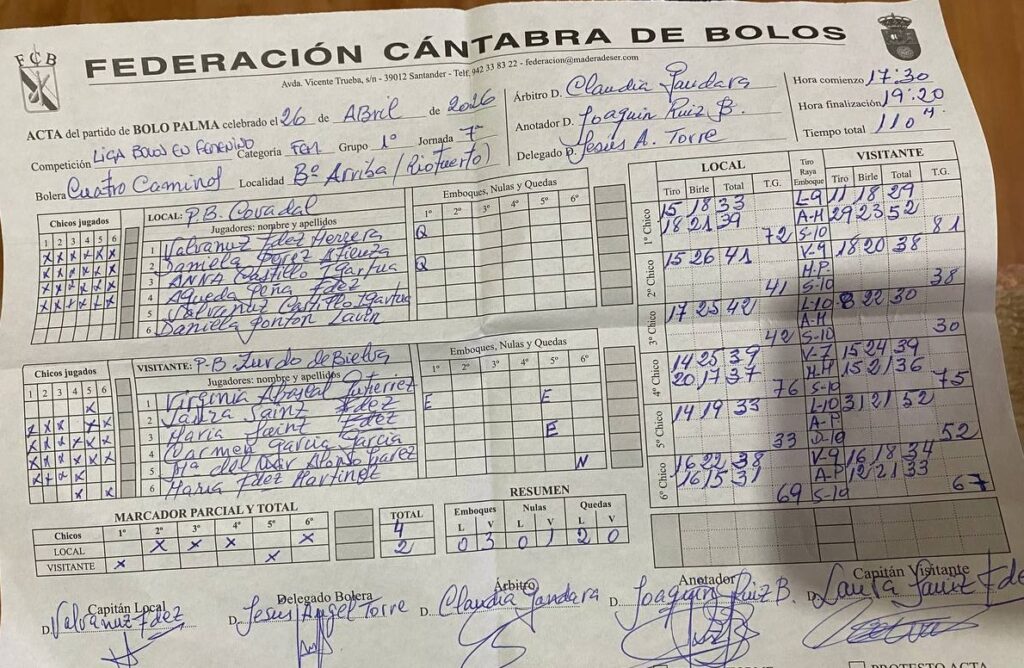 FCB
FEDERACIÓN CÁNTABRA DE BOLOS
Avda. Vicente Trueba, s/n - 39012 Santander - Telf. 942 33 83 22 - federacion@maderadeser.com
ACTA del partido de BOLO PALMA celebrado el 26 de ABril de 2026
Competición LIGA BOLOS EN FEMENINO Categoría FEM Grupo 1º Jornada 7ª
Bolera Cuatro Caminos Localidad Bº Arriba (Riotuerto)
Árbitro D. Claudia Gandara
Anotador D. Joaquin Ruiz B.
Delegado D. Jesús A. Torre
Hora comienzo 17:30
Hora finalización 19:20
Tiempo total 110 M
Chicos jugados
1 2 3 4 5 6
LOCAL: P.B. Covadal
Jugadores: nombre y apellidos
Emboques, Nulas y Quedas
1º 2º 3º 4º 5º 6º
1 Valvanuz Fdez Herrera Q
2 Daniela Perez Atienza
3 ANNA Castillo Igartua Q
4 Agueda Peña Fdez
5 Valvanuz Castillo Igartua
6 Daniela Pontón Lavin
Chicos jugados
1 2 3 4 5 6
VISITANTE: P.B. Zurdo de Bielva
Jugadores: nombre y apellidos
Emboques, Nulas y Quedas
1º 2º 3º 4º 5º 6º
1 Virginia Abascal Gutierrez
2 Laura Sainz Fdez E E
3 Maria Sainz Fdez
4 Carmen Garcia Garcia E
5 Mª del Mar Alonso
6 Maria Fdez Martinez N
LOCAL Tiro Raya Emboque VISITANTE
Tiro Birle Total T.G. Tiro Birle Total T.G.
1º Chico 15 18 33 L-9 11 18 29
18 21 39 A-H 29 23 52
72 S-10 81
2º Chico 15 26 41 V-9 18 20 38
H-P.
41 S-10 38
3º Chico 17 25 42 L-10 8 22 30
A-H
42 S-10 30
4º Chico 14 25 39 V-7 15 24 39
20 17 37 H-H 15 21 36
76 S-10 75
5º Chico 14 19 33 L-10 31 21 52
A-P
33 D-10 52
6º Chico 16 22 38 V-9 16 18 34
16 15 31 A-P 12 21 33
69 S-10 67
MARCADOR PARCIAL Y TOTAL
Chicos 1º 2º 3º 4º 5º 6º TOTAL
LOCAL x x x x 4
VISITANTE x x 2
RESUMEN
Emboques Nulas Quedas
L V L V L V
0 3 0 1 2 0
Capitán Local
D. Valvanuz Fdez
Delegado Bolera
D. Jesús Angel Torre
Árbitro
D. Claudia Gandara
Anotador
D. Joaquin Ruiz B.
Capitán Visitante
D. Laura Sainz Fde
PROTESTO ACTA